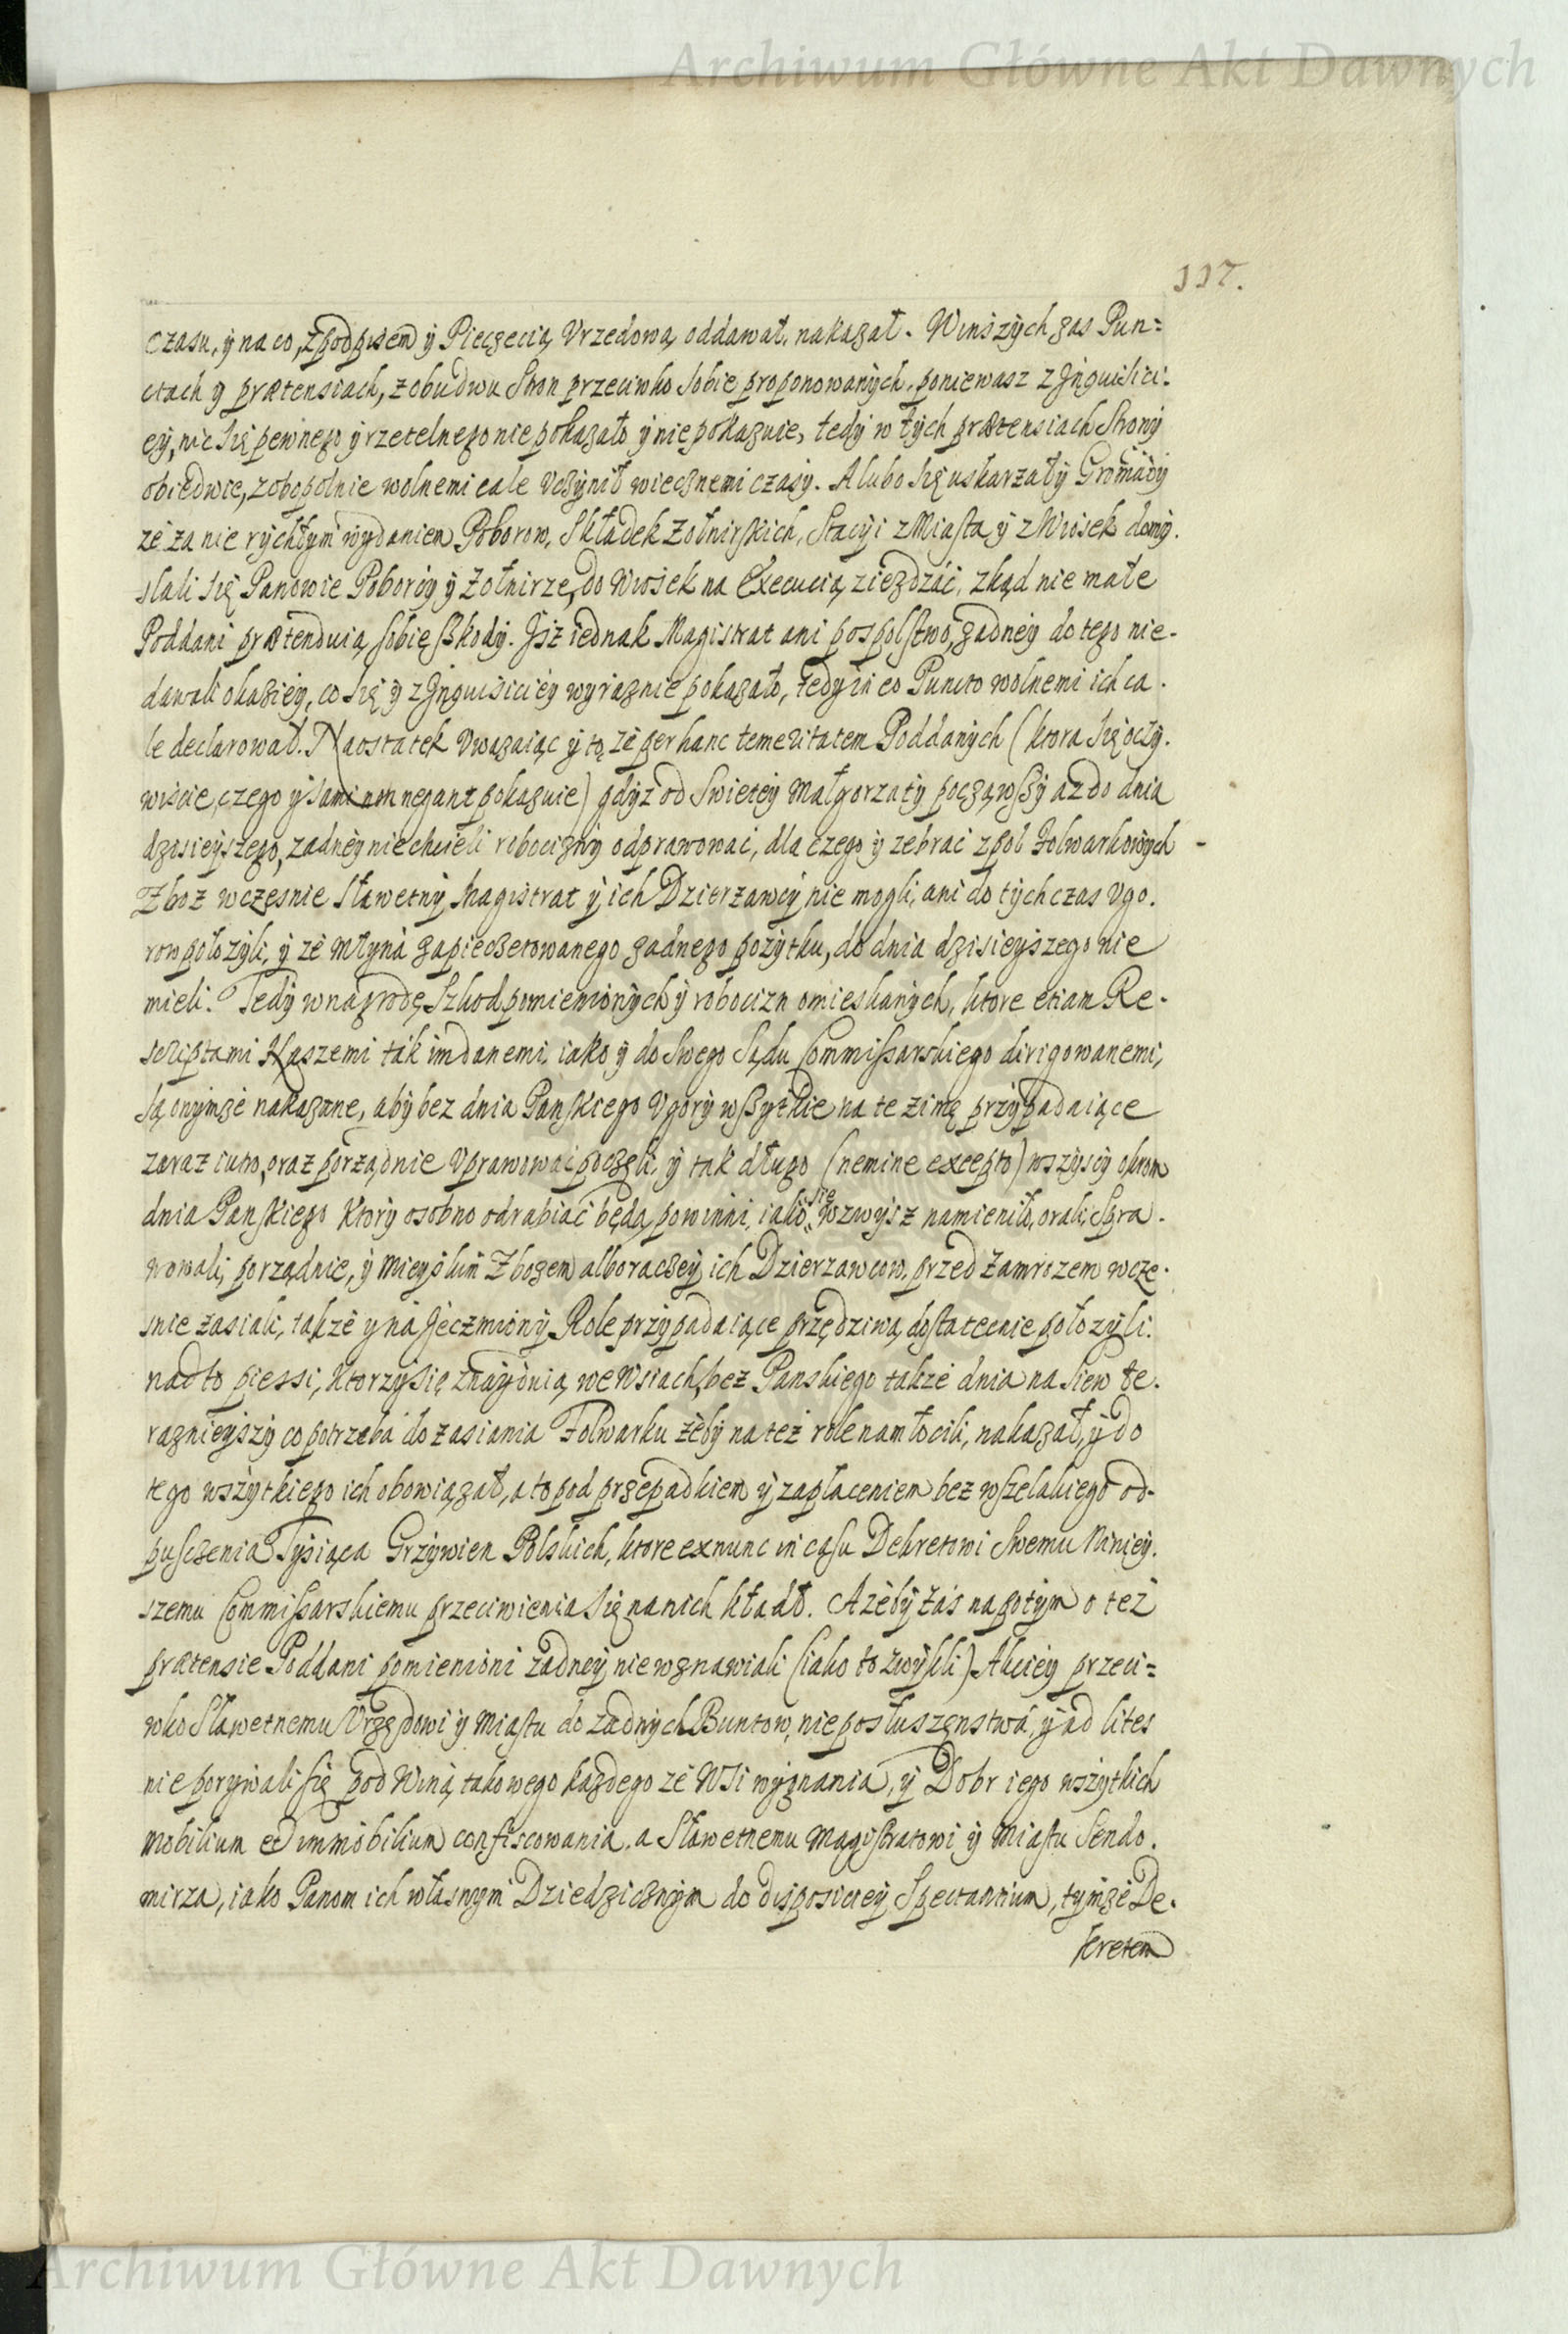 Archiwum Główne Akt Dawnych
117.
czasu, ÿ na co, z podpisem ÿ Pieczęcią Vrzedową oddawał, nakazał. Winszych zas Pun=
ctach y prætensiach, z obudwu Stron przeciwko sobie proponowanÿch, poniewasz z Jnquisici.
eÿ, nic się pewnego ÿ rzetelnego nie pokazało ÿ nie pokazuie, tedÿ w tÿch prætensiach Stronÿ
obiedwie, zobopolnie wolnemi cale vczÿnił wiecznemi czasÿ. A lubo się uskarzałÿ Gromadÿ
ze za nie rÿchłÿm wÿdaniem Poborow, Składek Zołnirskich, Stacÿi z Miasta ÿ z Wiosek domÿ.
slali się Panowie Poborcÿ ÿ Zołnirze, do Wiosek na Executią ziezdzać, zkąd nie małe
Poddani prætenduią sobie szkodÿ. Jsz iednak Magistrat ani pospolstwo, zadneÿ do tego nie.
dawali okazieÿ, co się ÿ z Jnquisicieÿ wyraznie pokazało, tedÿ in eo Puncto wolnemi ich ca.
le declarował. Naostatek vwazaiąc ÿ to, ze per hanc temeritatem Poddanÿch (ktora się oczÿ.
wiscie, czego ÿ sami non negant pokazuie) gdÿz od Swieteÿ Małgorzatÿ począwszÿ az do dnia
dzisieÿszego, zadneÿ nie chcieli robociznÿ odprawować, dla czego ÿ zebrac z pol Folwarkowÿch
Zboz wczesnie Sławetnÿ Magistrat ÿ ich Dzierzawcÿ nie mogli, ani do tÿch czas Vgo.
row połozÿli, ÿ ze Młÿna zapieczetowanego zadnego pozÿtku, do dnia dzisieÿszego nie
mieli. Tedÿ w nagrodę Szkod pomienionÿch ÿ robocizn omieskanÿch, ktore etiam Re.
scriptami Naszemi tak im danemi, iako ÿ do Swego Sądu Commissarskiego dirigowanemi,
są onÿmze nakazane, abÿ bez dnia Panskiego Vgorÿ wszytkie na te zimę przÿpadaiące
zaraz iutro, oraz porządnie Vprawowac poczęli, ÿ tak długo (nemine excepto) wszÿscÿ okrom
dnia Panskiego ktorÿ osobno odrabiać będą powinni, iako się wzwÿsz namieniło, orali, Spra.
wowali, porządnie, ÿ Mieÿskim Zbozem albo raczeÿ ich Dzierzawcow, przed zamrozem wcze.
snie zasiali, takze y na Jęczmionÿ Role przÿpadaiące przędziwą dostatecnie połozyli.
nadto piessi, ktorzÿ się znaÿduią we Wsiach, bez Panskiego takze dnia na siew te.
raznieÿszÿ co potrzeba do zasiania Folwarku zebÿ na tez role namłocili, nakazał, ÿ do
tego wszÿtkiego ich obowiązał, a to pod przepadkiem ÿ zapłaceniem bez wszelakiego od.
puszczenia Tÿsiąca Grzÿwien Polskich, ktore ex nunc in casu Dekretowi Swemu Nınieÿ.
szemu Commissarskiemu przeciwienia się na nich kładł. A zebÿ zas napotÿm o tez
prætensie Poddani pomienioni zadneÿ nie wznawiali (iako to zwÿkli) Akcieÿ przeci=
wko Sławetnemu Vrzędowi ÿ Miastu do zadnÿch Buntow, nieposłuszenstwa, ÿ ad lites
nie porÿwali się pod Winą takowego kazdego ze Wsi wÿgnania, ÿ Dobr iego wszÿtkich
Mobilium et immobilium confiscowania, a Sławetnemu Magistratowi ÿ Miastu Sendo.
mirza, iako Panom ich własnym Dziedzicznÿm do disposicieÿ Spectantium, tÿmze De.
kretem
Archiwum Główne Akt Dawnych